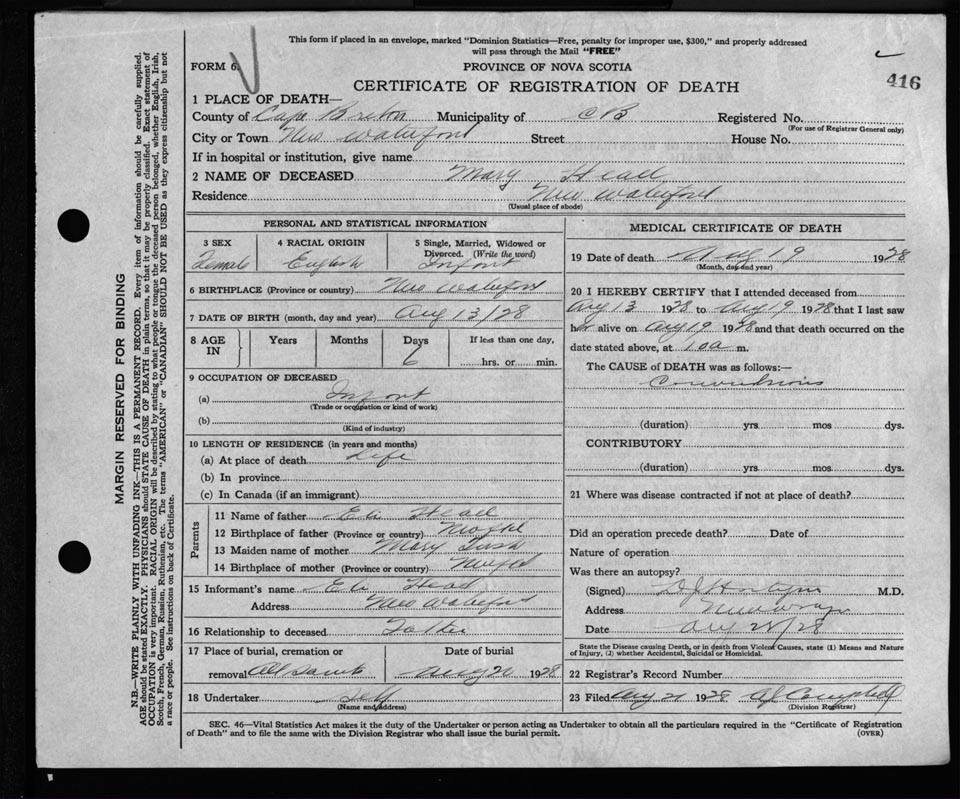 This form if placed in an envelope, marked "Dominion Statistics—Free, penalty for improper use, $300," and properly addressed
will pass through the Mail "FREE"
FORM 6.
PROVINCE OF NOVA SCOTIA
416
CERTIFICATE OF REGISTRATION OF DEATH
1 PLACE OF DEATH—
County of Cape Breton Municipality of CB Registered No.
(For use of Registrar General only)
City or Town New Waterford Street House No.
If in hospital or institution, give name
2 NAME OF DECEASED Mary Head
Residence New Waterford
(Usual place of abode)
PERSONAL AND STATISTICAL INFORMATION
3 SEX 4 RACIAL ORIGIN 5 Single, Married, Widowed or
Divorced. (Write the word)
Female English Infant
6 BIRTHPLACE (Province or country) New Waterford
7 DATE OF BIRTH (month, day and year) Aug 13/28
8 AGE IN Years Months Days If less than one day,
6 hrs. or min.
9 OCCUPATION OF DECEASED
(a) Infant
(Trade or occupation or kind of work)
(b)
(Kind of industry)
10 LENGTH OF RESIDENCE (in years and months)
(a) At place of death Life
(b) In province
(c) In Canada (if an immigrant)
Parents
11 Name of father Eli Head
12 Birthplace of father (Province or country) Nfld
13 Maiden name of mother Mary
14 Birthplace of mother (Province or country) Nfld
15 Informant's name Eli Head
Address New Waterford
16 Relationship to deceased Father
17 Place of burial, cremation or Date of burial
removal All Saints Aug 20 1928
18 Undertaker Self
(Name and address)
MEDICAL CERTIFICATE OF DEATH
19 Date of death Aug 19 1928
(Month, day and year)
20 I HEREBY CERTIFY that I attended deceased from
Aug 13 1928 to Aug 9 1928 that I last saw
her alive on Aug 19 1928 and that death occurred on the
date stated above, at 10 a m.
The CAUSE of DEATH was as follows:—
Convulsions
(duration) yrs. mos dys.
CONTRIBUTORY
(duration) yrs. mos. dys.
21 Where was disease contracted if not at place of death?
Did an operation precede death? Date of
Nature of operation
Was there an autopsy?
(Signed) M.D.
Address
Date Aug 28/28
State the Disease causing Death, or in death from Violent Causes, state (1) Means and Nature
of Injury, (2) whether Accidental, Suicidal or Homicidal.
22 Registrar's Record Number
23 Filed Aug 21 1928 AJ Campbell
(Division Registrar)
SEC. 46—Vital Statistics Act makes it the duty of the Undertaker or person acting as Undertaker to obtain all the particulars required in the "Certificate of Registration
of Death" and to file the same with the Division Registrar who shall issue the burial permit.
(OVER)
MARGIN RESERVED FOR BINDING
N.B.—WRITE PLAINLY WITH UNFADING INK—THIS IS A PERMANENT RECORD. Every item of information should be carefully supplied.
AGE should be stated EXACTLY. PHYSICIANS should STATE CAUSE OF DEATH in plain terms, so that it may be properly classified. Exact statement of
OCCUPATION is very important. RACIAL ORIGIN will be described by stating to what people or tongue the deceased person belonged, whether English, Irish,
Scotch, French, German, Russian, Ruthenian, etc. The terms "AMERICAN" or "CANADIAN" SHOULD NOT BE USED as they express citizenship but not
a race or people. See instructions on back of Certificate.